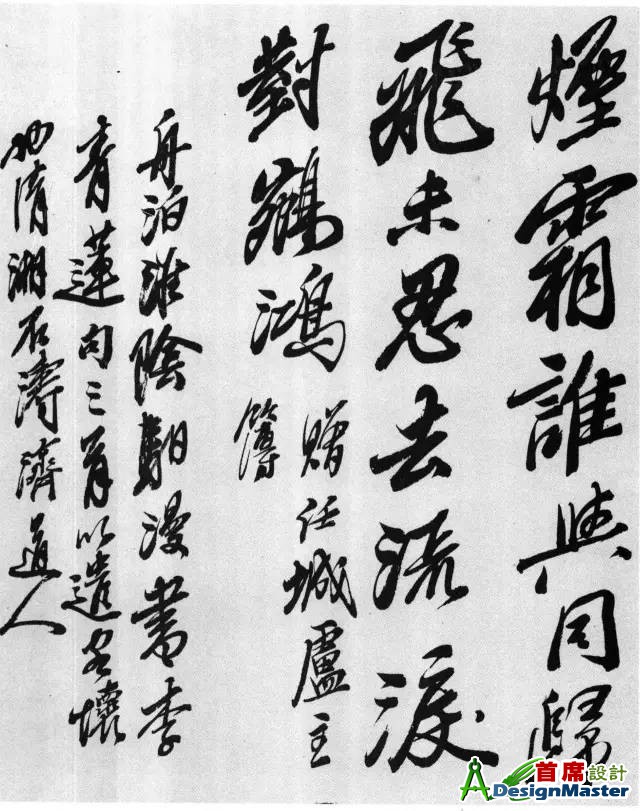 煙霜誰與同歸
飛未忍去流淚
對鵷鴻
贈任城盧主
簿
舟泊淮陰漫書李
青蓮句三首以遣客懷
清湘石濤濟道人
首席設計
ADesignMaster